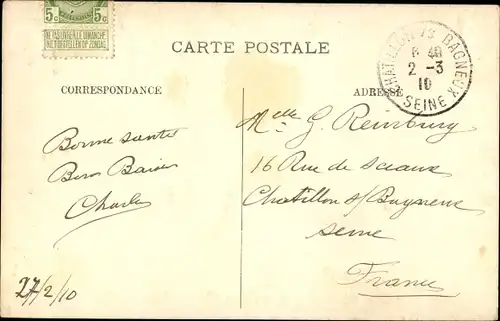 5c 5c
NE PAS LIVRER LE DIMANCHE
NIET BESTELLEN OP ZONDAG
CARTE POSTALE
CHATILLON-S-BAGNEUX
2 -3
10
SEINE
CORRESPONDANCE
ADRESSE
Bonne santé
Bons Baisers
Charles
27/2/10
Melle G.
16 Rue de Sceaux
Chatillon s/ Bagneux
Seine
France